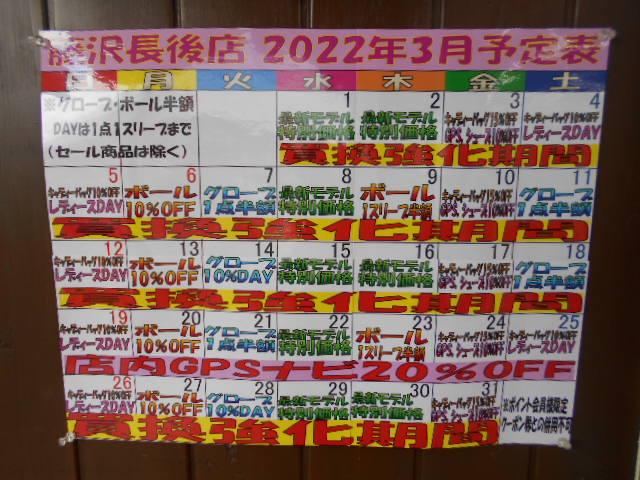 藤沢長後店 2022年3月予定表
日 月 火 水 木 金 土
※グローブ・ボール半額
DAYは1点1スリーブまで
(セール商品は除く)
1 2 3 4
最新モデル 最新モデル キャディーバッグ15%OFF キャディーバッグ10%OFF
特別価格 特別価格 GPS、シューズ10%OFF レディースDAY
買換強化期間
5 6 7 8 9 10 11
キャディーバッグ10%OFF ボール グローブ 最新モデル ボール キャディーバッグ15%OFF グローブ
レディースDAY 10%OFF 1点半額 特別価格 1スリーブ半額 GPS、シューズ10%OFF 1点半額
買換強化期間
12 13 14 15 16 17 18
キャディーバッグ10%OFF ボール グローブ 最新モデル 最新モデル キャディーバッグ15%OFF グローブ
レディースDAY 10%OFF 10%DAY 特別価格 特別価格 GPS、シューズ10%OFF 1点半額
買換強化期間
19 20 21 22 23 24 25
キャディーバッグ10%OFF ボール グローブ 最新モデル ボール キャディーバッグ15%OFF キャディーバッグ10%OFF
レディースDAY 20%OFF 1点半額 特別価格 1スリーブ半額 GPS、シューズ10%OFF レディースDAY
店内GPSナビ20%OFF
26 27 28 29 30 31
キャディーバッグ10%OFF ボール グローブ 最新モデル 最新モデル キャディーバッグ15%OFF ※ポイント会員様限定
レディースDAY 20%OFF 10%DAY 特別価格 特別価格 GPS、シューズ10%OFF クーポン券との併用不可
買換強化期間